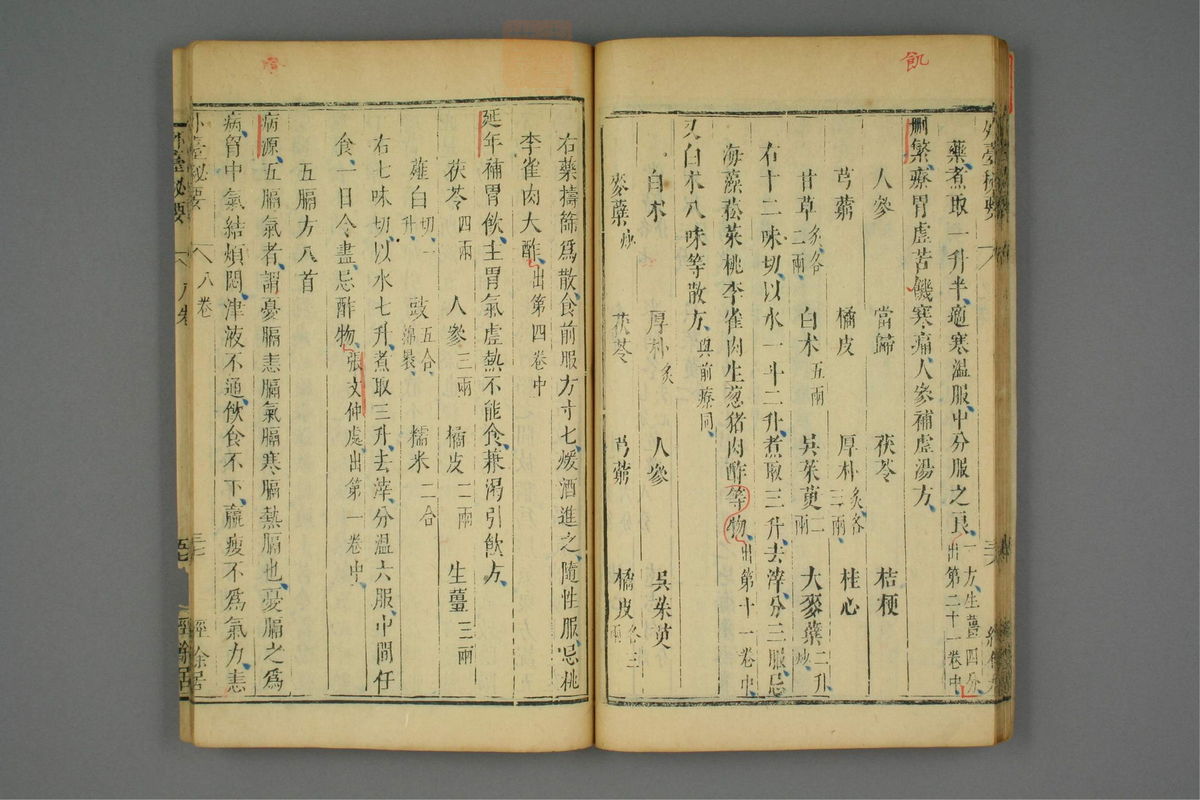 飢
外臺秘要
藥煮取一升半適寒溫服中分服之良一方生薑四分出第二十一卷中
刪繁療胃虛苦饑寒痛人參補虛湯方
人參 當歸 茯苓 桔梗
芎藭 橘皮 厚朴炙各三兩 桂心
甘草炙各二兩 白朮五兩 吳茱萸二兩 大麥蘖二升炒
右十二味切以水一斗二升煮取三升去滓分三服忌
海藻菘菜桃李雀肉生葱猪肉酢等物出第十一卷中
又白朮八味等散方與前療同
白朮 厚朴炙 人參 吳茱萸
麥蘖炒 茯苓 芎藭 橘皮各三兩
右藥擣篩爲散食前服方寸七煖酒進之隨性服忌桃
李雀肉大酢出第四卷中
延年補胃飲主胃氣虛熱不能食兼渴引飲方
茯苓四兩 人參三兩 橘皮二兩 生薑三兩
薤白切一升 豉五合綿裹 糯米二合
右七味切以水七升煮取三升去滓分溫六服中間任
食一日令盡忌酢物張文仲處出第一卷中
五膈方八首
病源五膈氣者謂憂膈恚膈氣膈寒膈熱膈也憂膈之爲
病胷中氣結煩悶津液不通飲食不下羸瘦不爲氣力恚
外臺秘要 八卷 經餘居
外臺秘要 八卷 經餘居